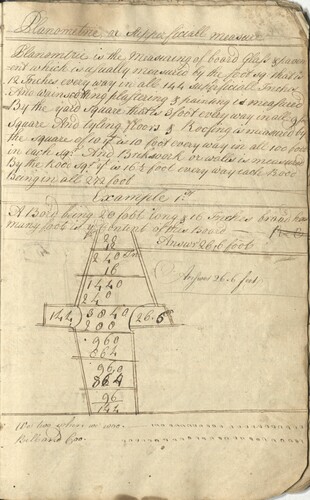 Planometrie or Supperficiall measure
Planometrie is the Measuring of board Glass & pavem
ent which is usually measured by the foot sq that is
12 Inches every way in all 144 supperficiall Inches
And plastering & painting is measured
By the yard Square that is 3 foot every way in all 9 f
Square And tyling floors & Roofing is measured by
the square of 10 f is 10 foot every way in all 100 foot
in each sqr And Brickwork or wales is measured
By the Rod sqr yt is 16½ foot every way each Rood
Being in all 272 foot
Example 1st
A Bord being 20 foot long & 16 Inches broad how
many foot is ye Content of this Board
Answer 26.6 foot
20
240
16
Answer 26.6 feet
1440
240
144) 3840 (26.6
288
960
864
960
864
96
144